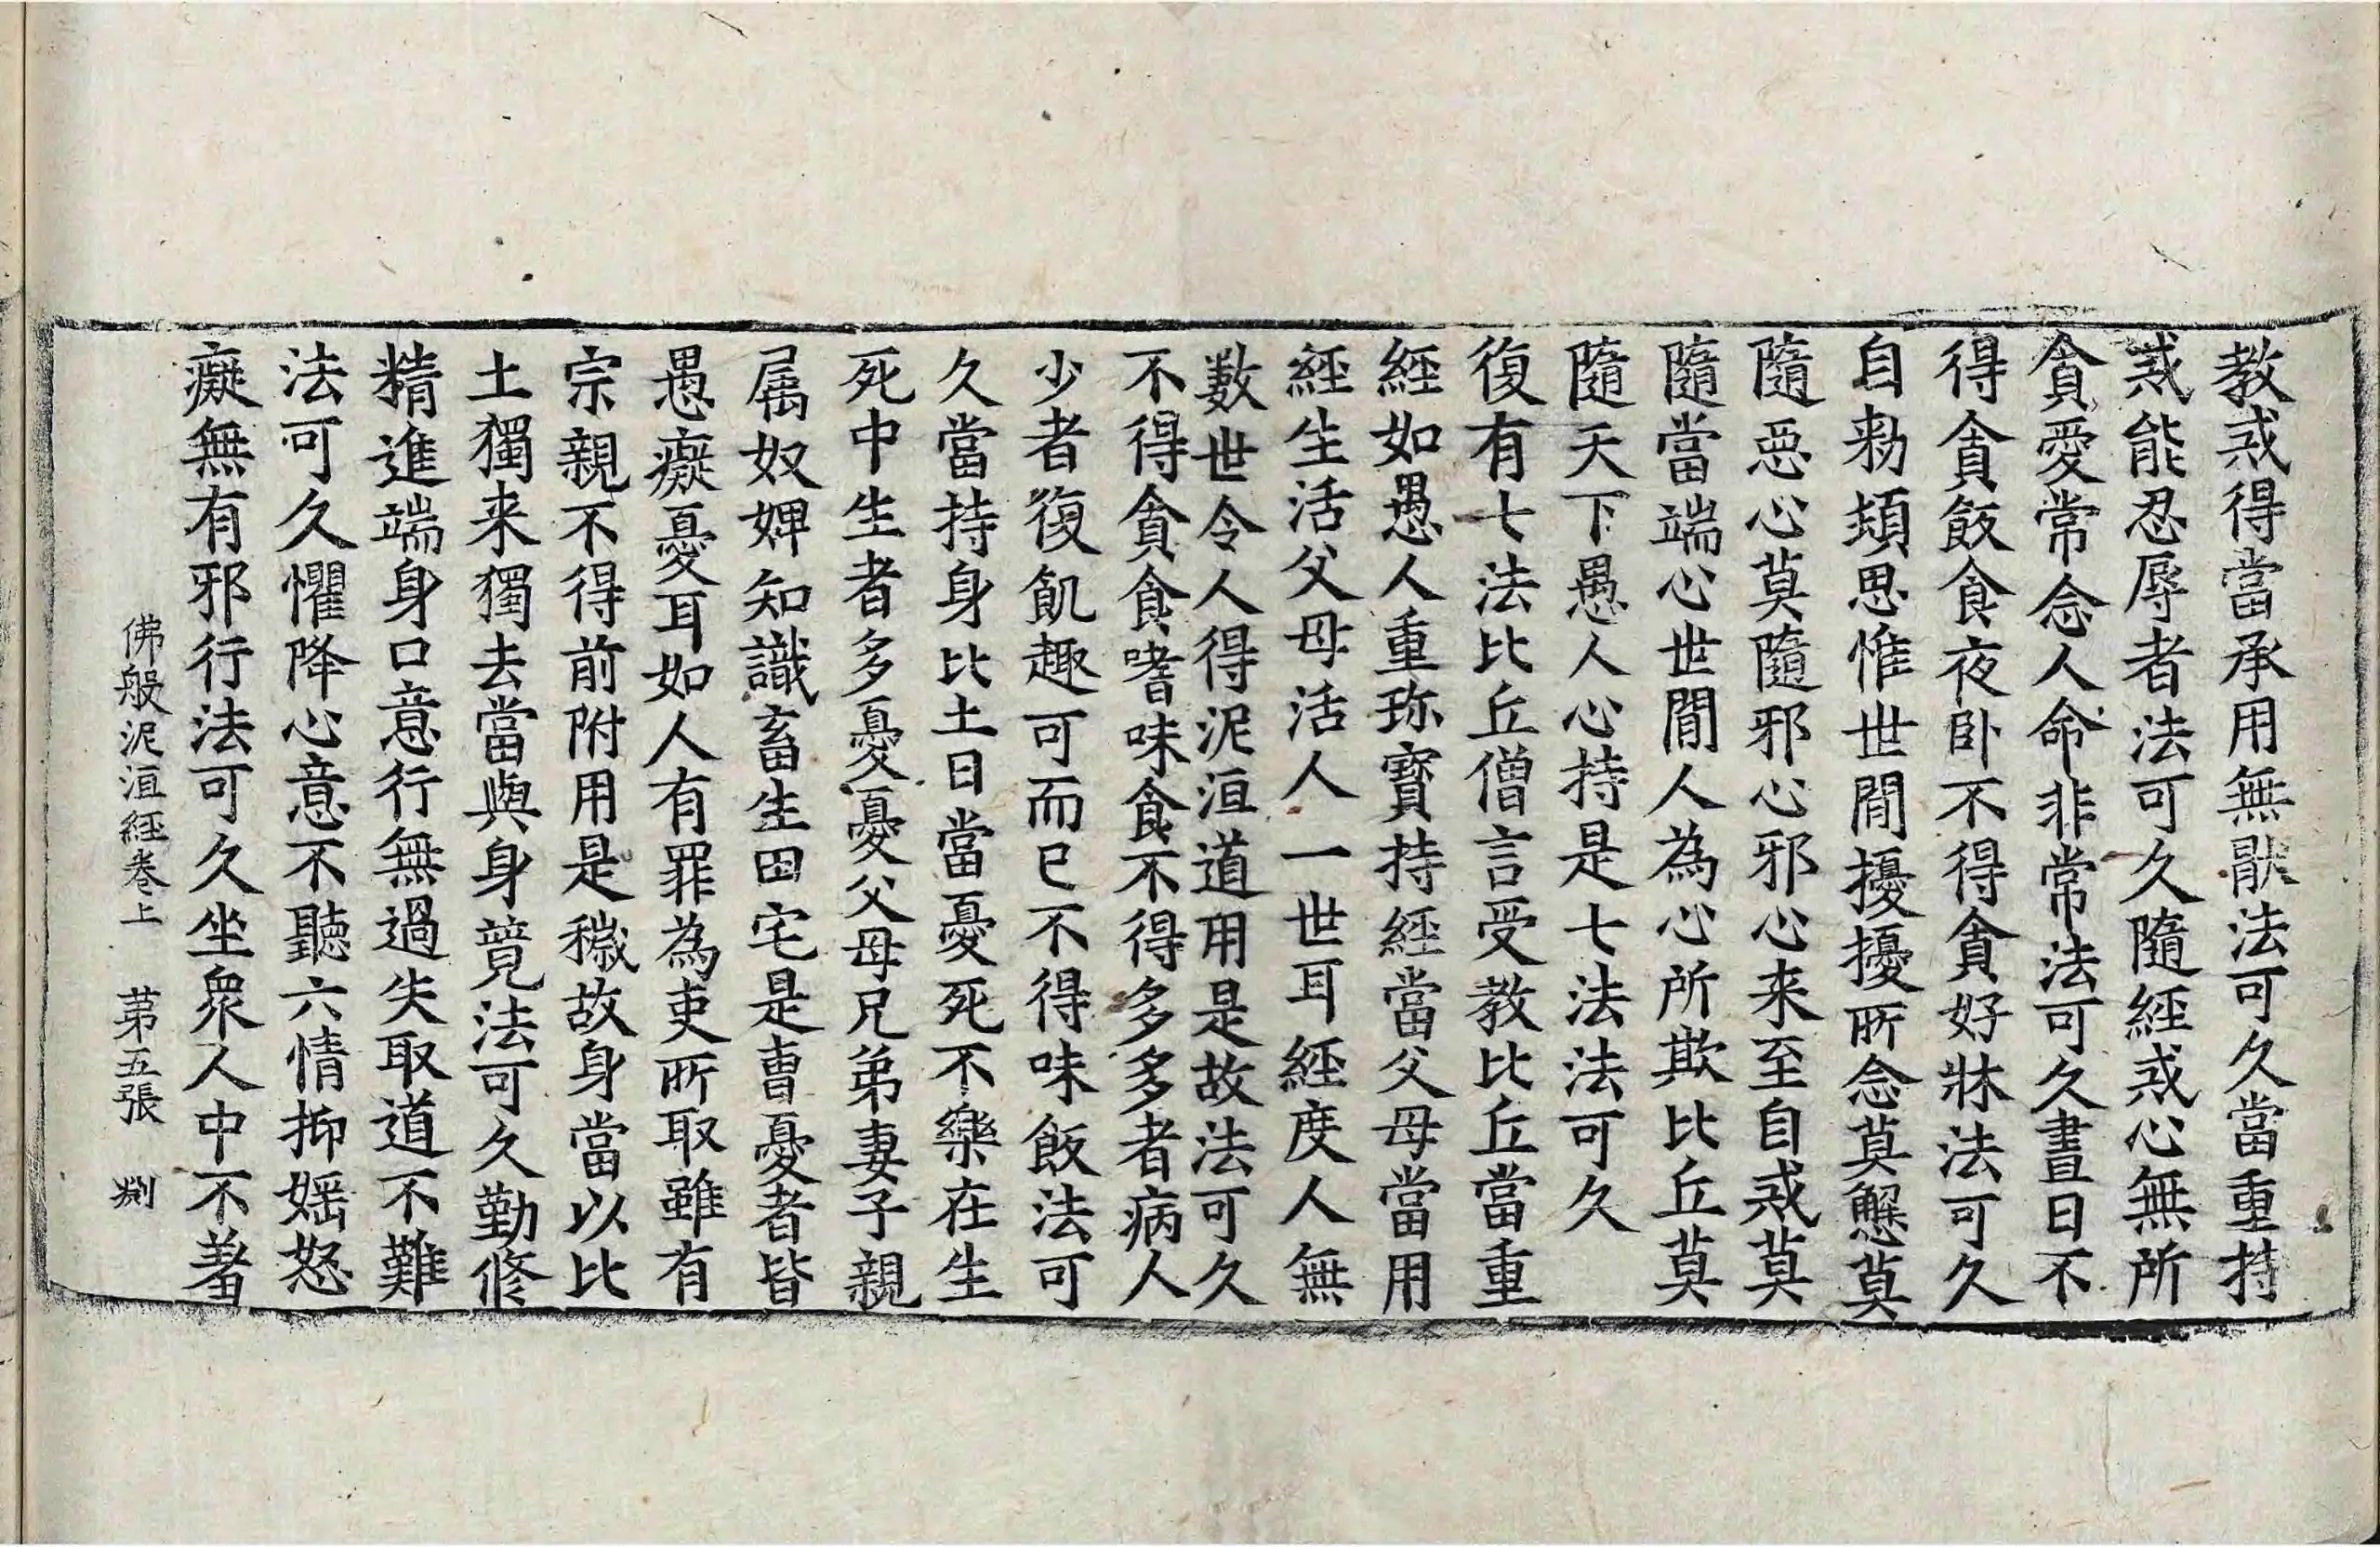 教戒得當承用無猒法可久當重持
戒能忍辱者法可久隨經戒心無所
貪愛常念人命非常法可久晝日不
得貪飯食夜卧不得貪好牀法可久
自勑頻思惟世閒擾擾所念莫懈怠莫
隨惡心莫隨邪心邪心来至自戒莫
隨當端心世閒人為心所欺比丘莫
隨天下愚人心持是七法法可久
復有七法比丘僧言受教比丘當重
經如愚人重珎寶持經當父母當用
經生活父母活人一世耳經度人無
數世令人得泥洹道用是故法可久
不得貪食嗜味食不得多多者病人
少者復飢趣可而已不得味飯法可
久當持身比土日當憂死不樂在生
死中生者多憂憂父母兄弟妻子親
属奴婢知識畜生田宅是曺憂者皆
愚癡憂耳如人有罪為吏所取雖有
宗親不得前附用是穢故身當以比
土獨来獨去當與身競法可久勤修
精進端身口意行無過失取道不難
法可久懼降心意不聽六情抑婬怒
癡無有邪行法可久坐衆人中不著
佛般泥洹經卷上　苐五張